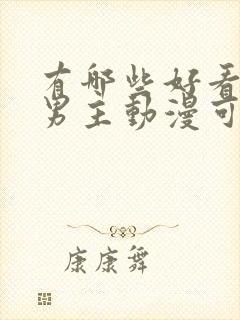 有哪些好看
男主動漫可
康康舞